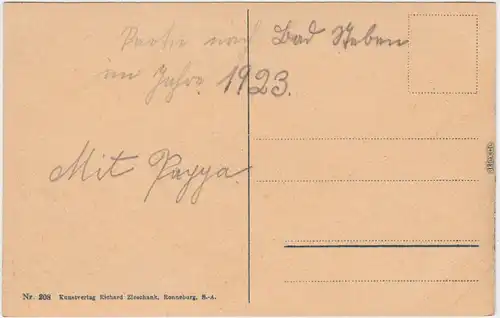 Partie nach Bad Steben
im Jahre 1923.
Mit Pappa
Nr. 208 Kunstverlag Richard Zieschank, Ronneburg, S.-A.